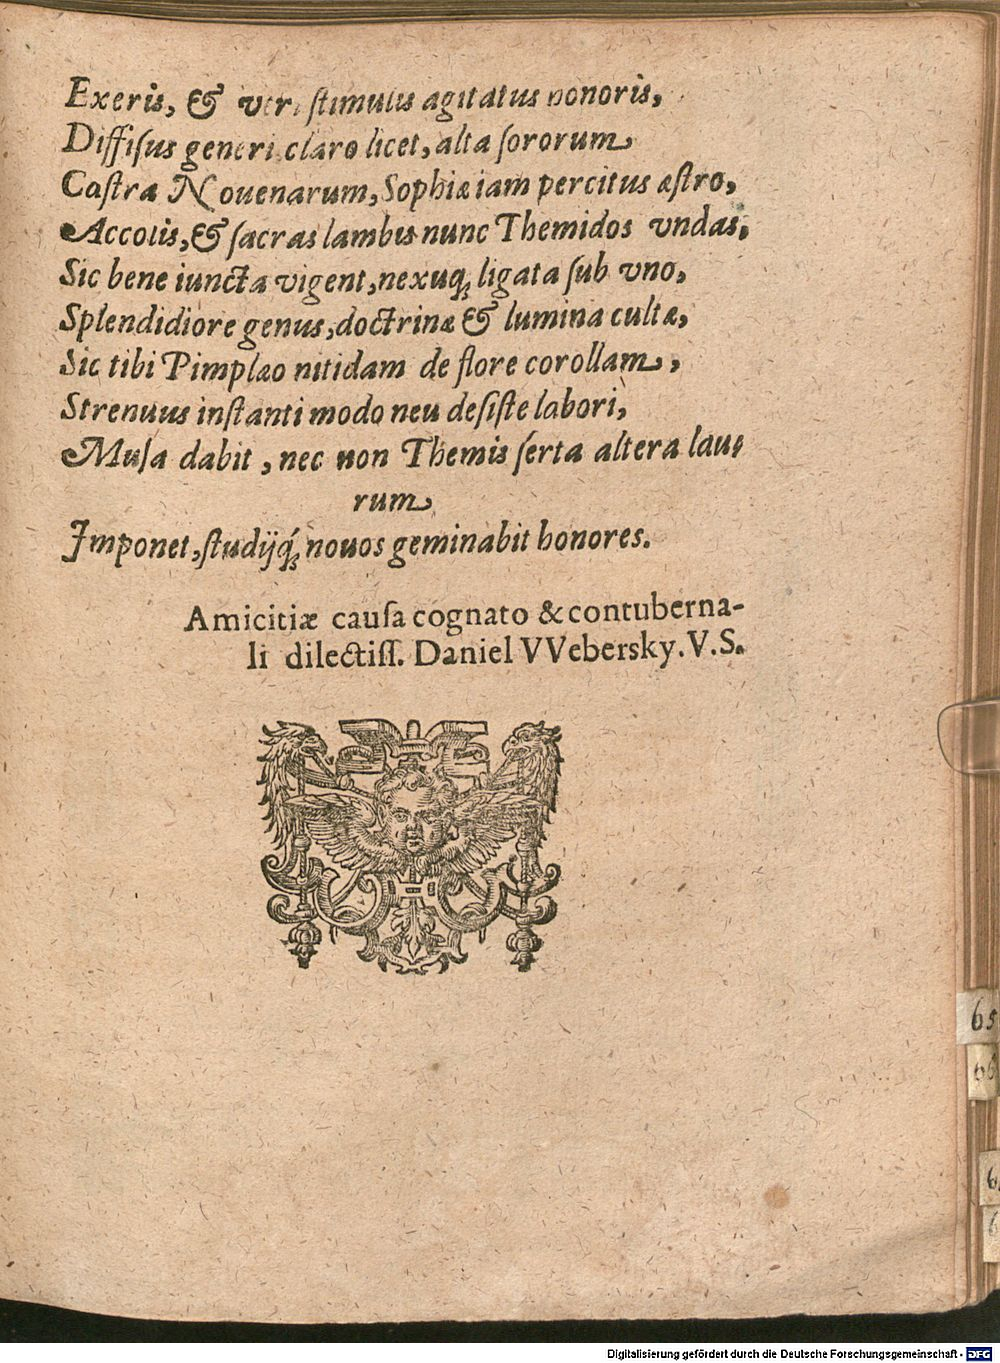 Exeris, & veri stimulis agitatus honoris,
Diffisus generi claro licet, alta sororum
Castra Nouenarum, Sophiæ iam percitus æstro,
Accolis, & sacras lambis nunc Themidos vndas,
Sic bene iuncta vigent, nexuq; ligata sub vno,
Splendidiore genus, doctrinæ & lumina cultæ,
Sic tibi Pimplæo nitidam de flore corollam,
Strenuus instanti modo neu desiste labori,
Musa dabit, nec non Themis serta altera lau-
rum
Imponet, studijq́; nouos geminabit honores.
Amicitiæ causa cognato & contuberna-
li dilectiss. Daniel VVebersky. V.S.
65
66
6
6
Digitalisierung gefördert durch die Deutsche Forschungsgemeinschaft - DFG